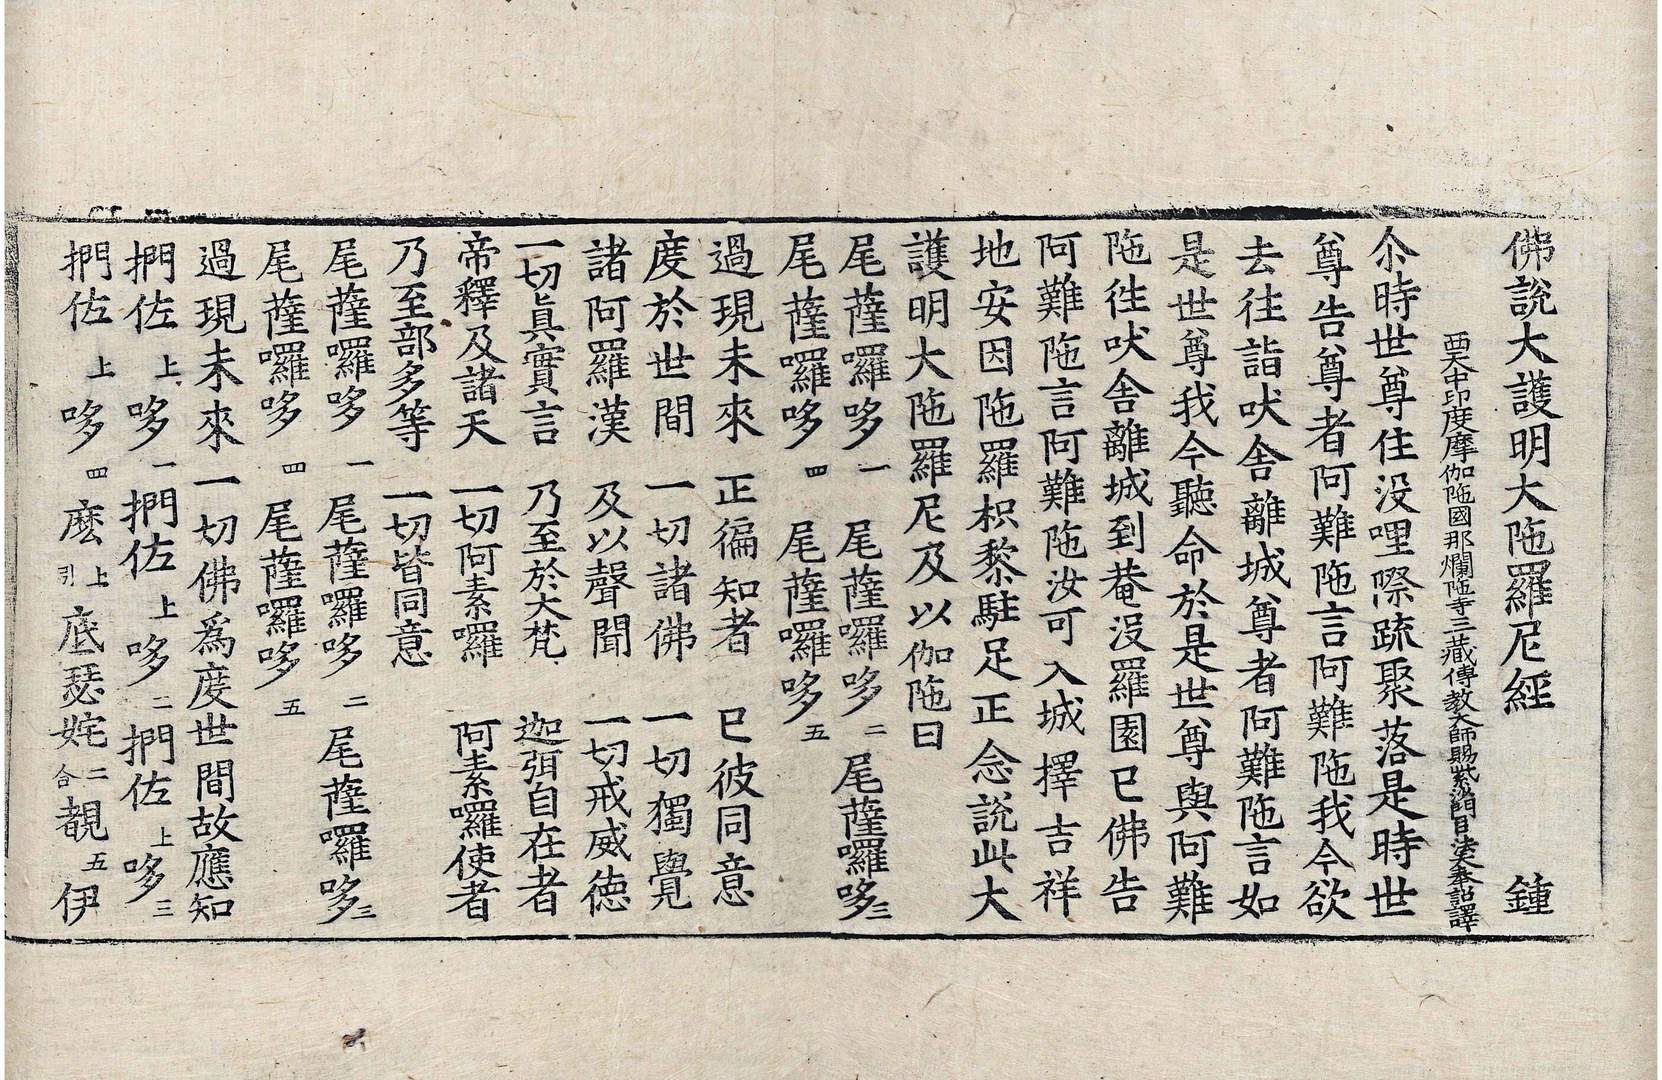 佛說大護明大陁羅尼經　鍾
西天中印度摩伽陁國那爛陁寺三藏傳教大師賜紫沙門臣法天奉詔譯
尒時世尊住没哩際疏聚落是時世
尊告尊者阿難陁言阿難陁我今欲
去往詣吠舍離城尊者阿難陁言如
是世尊我今聽命於是世尊與阿難
陁徃吠舍離城到菴没羅園已佛告
阿難陁言阿難陁汝可入城擇吉祥
地安因陁羅枳黎駐足正念説此大
護明大陁羅尼及以伽陁曰
尾薩囉哆一　尾薩囉哆二　尾薩囉哆三
尾薩囉哆四　尾薩囉哆五
過現未來　正徧知者　已彼同意
度於世間　一切諸佛　一切獨覺
諸阿羅漢　及以聲聞　一切戒威德
一切眞實言　乃至於大梵　迦弭自在者
帝釋及諸天　一切阿素囉　阿素囉使者
乃至部多等　一切皆同意
尾薩囉哆一　尾薩囉哆二　尾薩囉哆三
尾薩囉哆四　尾薩囉哆五
過現未來一切佛爲度世間故應知
捫佐上哆一捫佐上哆二捫佐上哆三
捫佐上哆四麼上引底瑟姹二合覩五伊